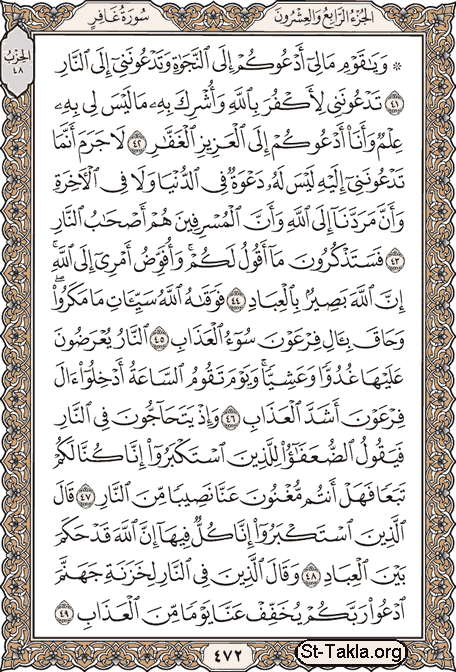 الجُزْءُ الرَّابِعُ وَالعِشْرُونَ
سُورَةُ غَافِرٍ
الحِزْبُ ٤٨
۞ وَيَٰقَوْمِ مَا لِىٓ أَدْعُوكُمْ إِلَى ٱلنَّجَوٰةِ وَتَدْعُونَنِىٓ إِلَى ٱلنَّارِ
٤١ تَدْعُونَنِى لِأَكْفُرَ بِٱللَّهِ وَأُشْرِكَ بِهِۦ مَا لَيْسَ لِى بِهِۦ
عِلْمٌ وَأَنَا۠ أَدْعُوكُمْ إِلَى ٱلْعَزِيزِ ٱلْغَفَّٰرِ ٤٢ لَا جَرَمَ أَنَّمَا
تَدْعُونَنِىٓ إِلَيْهِ لَيْسَ لَهُۥ دَعْوَةٌ فِى ٱلدُّنْيَا وَلَا فِى ٱلْءَاخِرَةِ
وَأَنَّ مَرَدَّنَآ إِلَى ٱللَّهِ وَأَنَّ ٱلْمُسْرِفِينَ هُمْ أَصْحَٰبُ ٱلنَّارِ
٤٣ فَسَتَذْكُرُونَ مَآ أَقُولُ لَكُمْ ۚ وَأُفَوِّضُ أَمْرِىٓ إِلَى ٱللَّهِ ۚ
إِنَّ ٱللَّهَ بَصِيرٌۢ بِٱلْعِبَادِ ٤٤ فَوَقَىٰهُ ٱللَّهُ سَيِّـَٔاتِ مَا مَكَرُوا۟ ۖ
وَحَاقَ بِـَٔالِ فِرْعَوْنَ سُوٓءُ ٱلْعَذَابِ ٤٥ ٱلنَّارُ يُعْرَضُونَ
عَلَيْهَا غُدُوًّا وَعَشِيًّا ۖ وَيَوْمَ تَقُومُ ٱلسَّاعَةُ أَدْخِلُوٓا۟ ءَالَ
فِرْعَوْنَ أَشَدَّ ٱلْعَذَابِ ٤٦ وَإِذْ يَتَحَآجُّونَ فِى ٱلنَّارِ
فَيَقُولُ ٱلضُّعَفَٰٓؤُا۟ لِلَّذِينَ ٱسْتَكْبَرُوٓا۟ إِنَّا كُنَّا لَكُمْ
تَبَعًا فَهَلْ أَنتُم مُّغْنُونَ عَنَّا نَصِيبًا مِّنَ ٱلنَّارِ ٤٧ قَالَ
ٱلَّذِينَ ٱسْتَكْبَرُوٓا۟ إِنَّا كُلٌّ فِيهَآ إِنَّ ٱللَّهَ قَدْ حَكَمَ
بَيْنَ ٱلْعِبَادِ ٤٨ وَقَالَ ٱلَّذِينَ فِى ٱلنَّارِ لِخَزَنَةِ جَهَنَّمَ
ٱدْعُوا۟ رَبَّكُمْ يُخَفِّفْ عَنَّا يَوْمًا مِّنَ ٱلْعَذَابِ ٤٩
٤٧٢
St-Takla.org